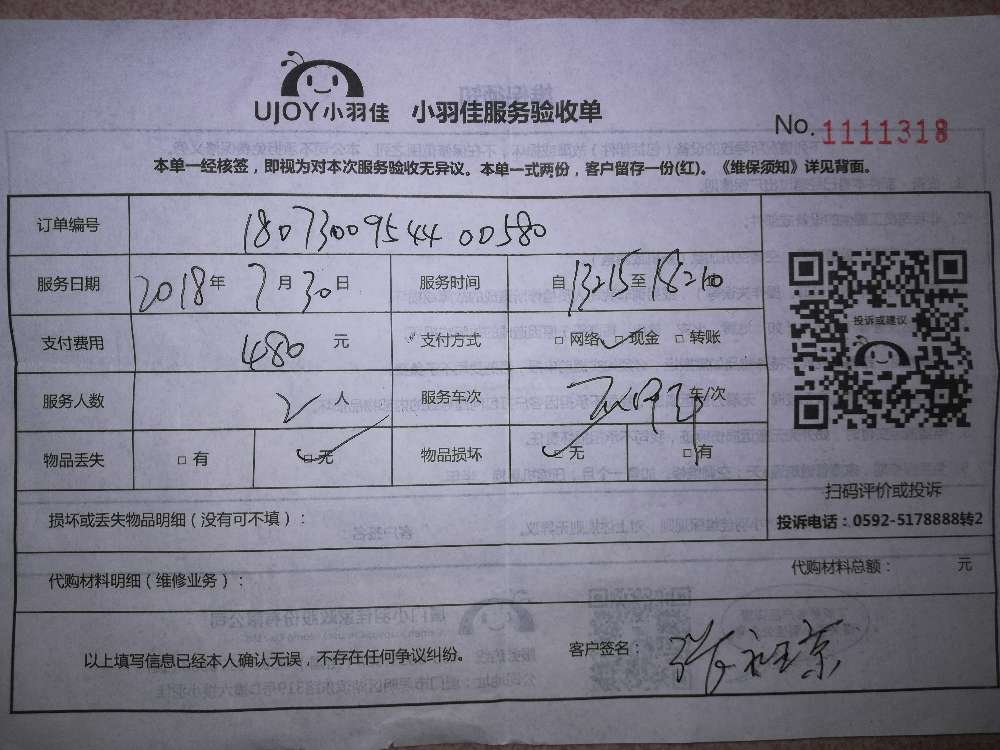 UJOY小羽佳 小羽佳服务验收单
No. 1111318
本单一经核签，即视为对本次服务验收无异议。本单一式两份，客户留存一份(红)。《维保须知》详见背面。
订单编号 18073009544400580
服务日期 2018年7月30日 服务时间 自13:15至18:20
支付费用 480 元 支付方式 □网络 □现金 □转账
服务人数 2 人 服务车次 车/次
物品丢失 □有 □无 物品损坏 □无 □有
投诉或建议
扫码评价或投诉
投诉电话：0592-5178888转2
损坏或丢失物品明细（没有可不填）：
代购材料明细（维修业务）： 代购材料总额： 元
以上填写信息已经本人确认无误，不存在任何争议纠纷。 客户签名：